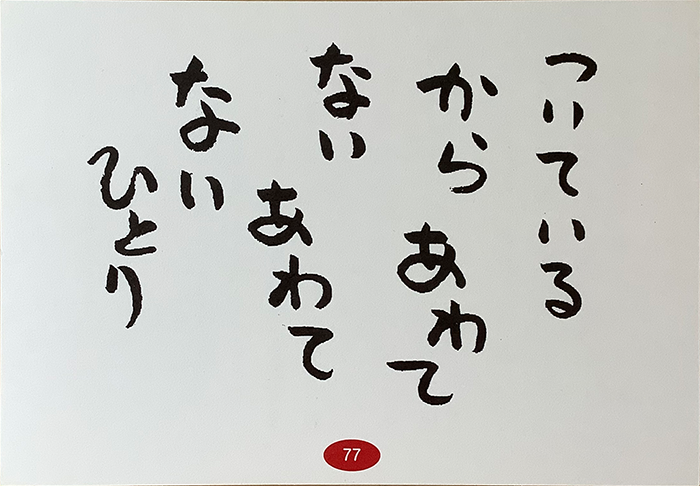 ついている
から あわて
ない あわて
ない
ひとり
77